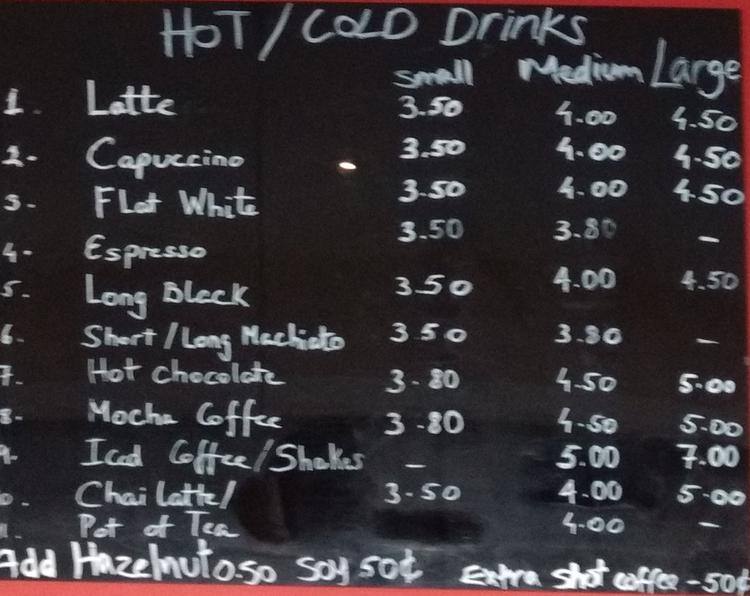 HOT / COLD Drinks
Small Medium Large
1. Latte 3.50 4.00 4.50
2- Capuccino 3.50 4.00 4.50
3- Flat White 3.50 4.00 4.50
4- Espresso 3.50 3.80 -
5- Long Black 3.50 4.00 4.50
6- Short/Long Machiato 3.50 3.80 -
7- Hot chocolate 3.80 4.50 5.00
8- Mocha Coffee 3.80 4.50 5.00
9- Iced Coffee/Shakes - 5.00 7.00
0. Chai Latte/ 3.50 4.00 5.00
11. Pot of Tea 4.00 -
Add Hazelnut 0.50 Soy 50¢ Extra shot coffee - 50¢